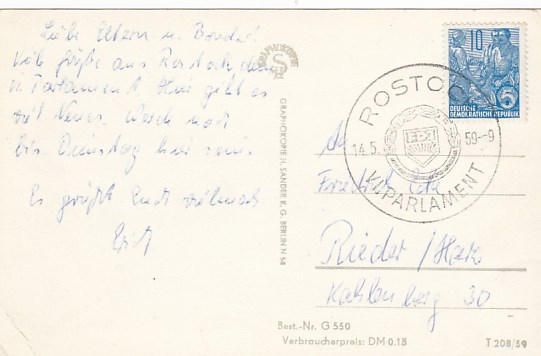 Liebe Eltern u. Bruder!
Viele Grüße aus Rostock dem
Parlament. Hier gibt es
viel Neues. Werde noch
bis Dienstag hier sein.
Es grüßt Euch vielmals
GRAPHOKOPIE H. SANDER K. G. BERLIN N 54
10
DEUTSCHE
DEMOKRATISCHE REPUBLIK
5
ROSTOCK
14.5.
59--9
VI. PARLAMENT
An
Rieder / Harz
Kahlenberg 30
Best.-Nr. G 550
Verbraucherpreis: DM 0.18
T 208/59